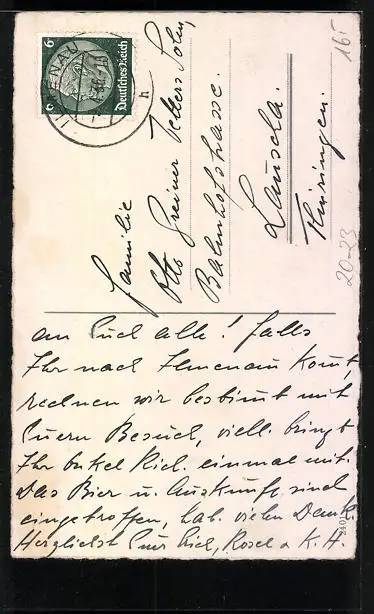 Familie
Otto Greiner Vetters Sohn,
Bahnhofstrasse.
Lauscha.
Thüringen.
Deutsches Reich
6
6
ILMENAU
h
16.-
20-23
an Euch alle! Falls
Ihr nach Ilmenau kommt
rechnen wir bestimmt mit
Euern Besuch, viell. bringt
Ihr Onkel Rich. einmal mit.
Das Bier u. Auskunft sind
eingetroffen, hab. vielen Dank.
Herzlichst Eure Erich, Rosel u. K. H.